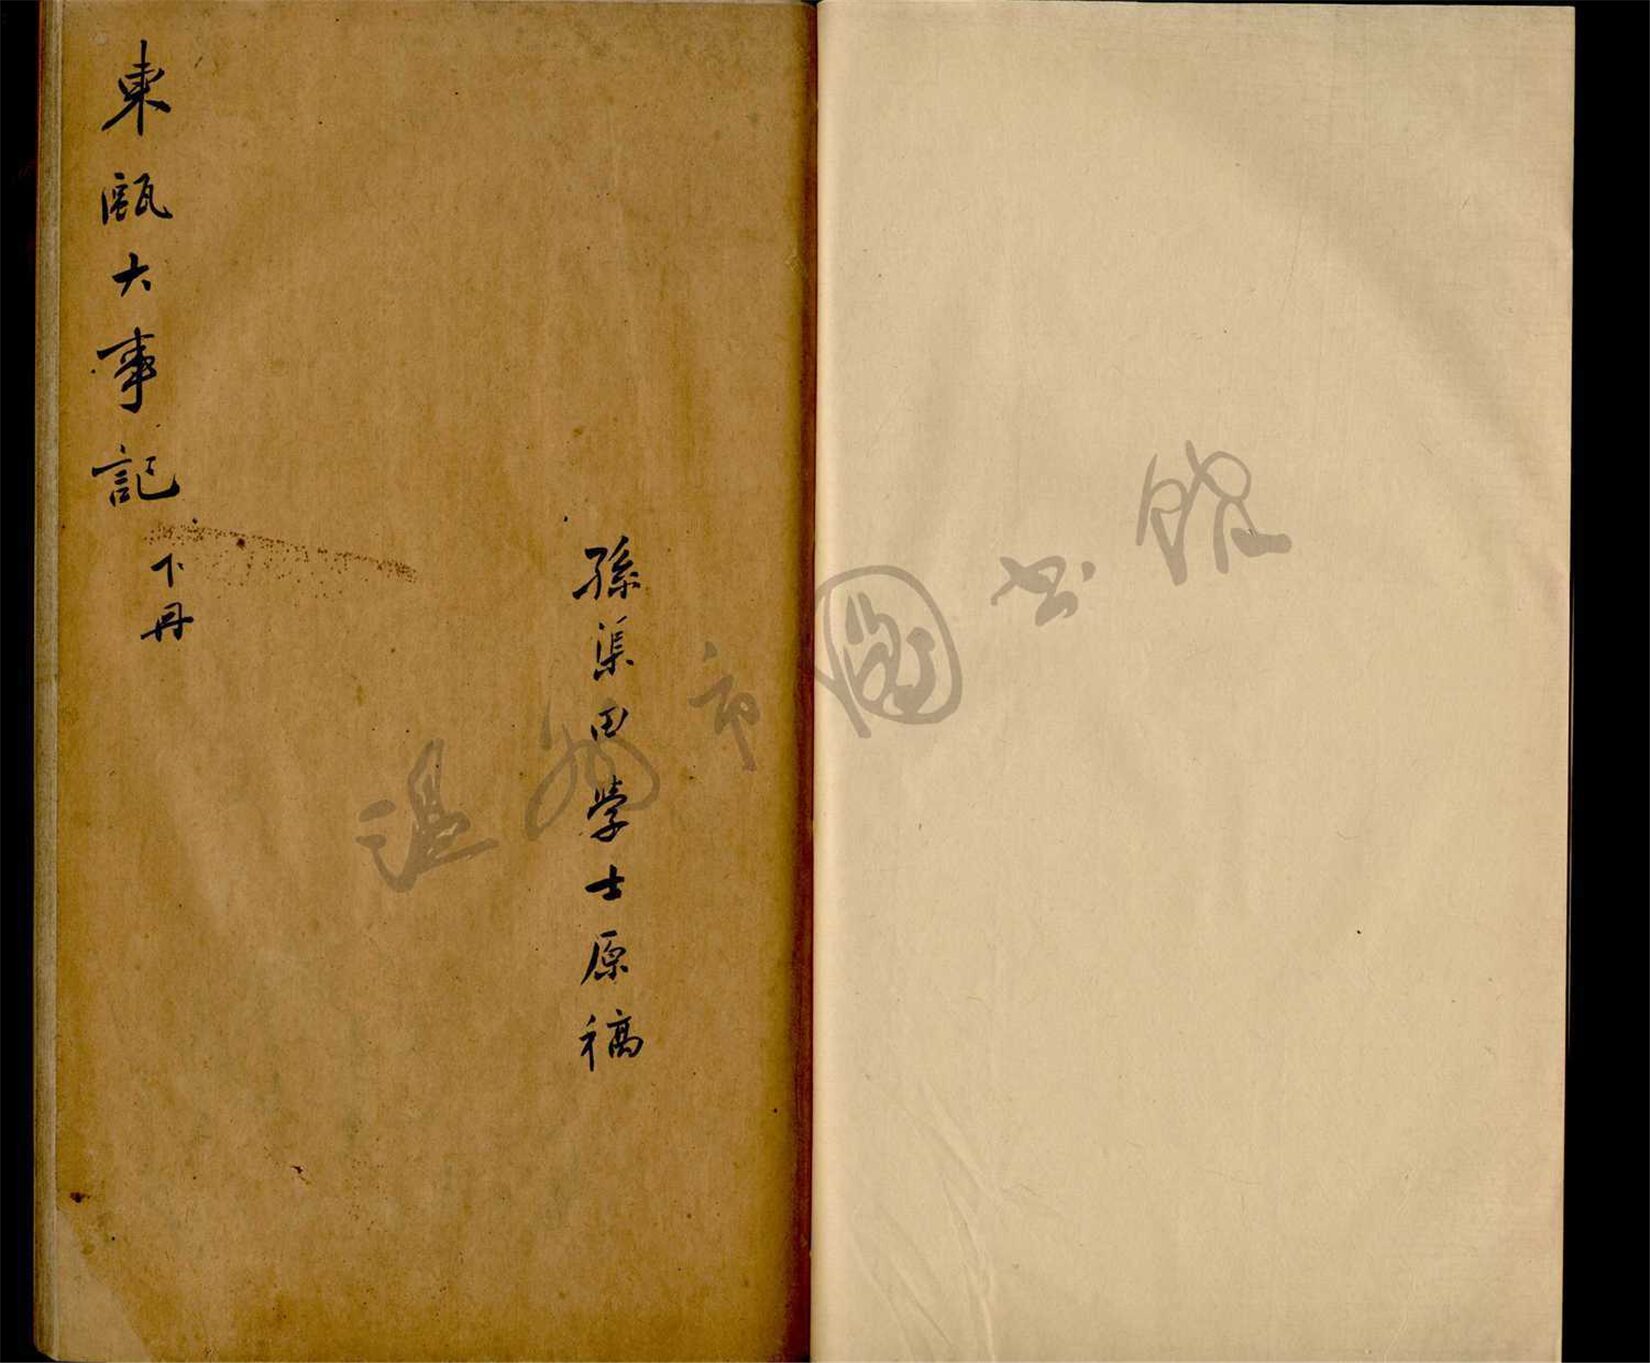 孫渠田學士原稿
東甌大事記
下冊
温州市圖书館